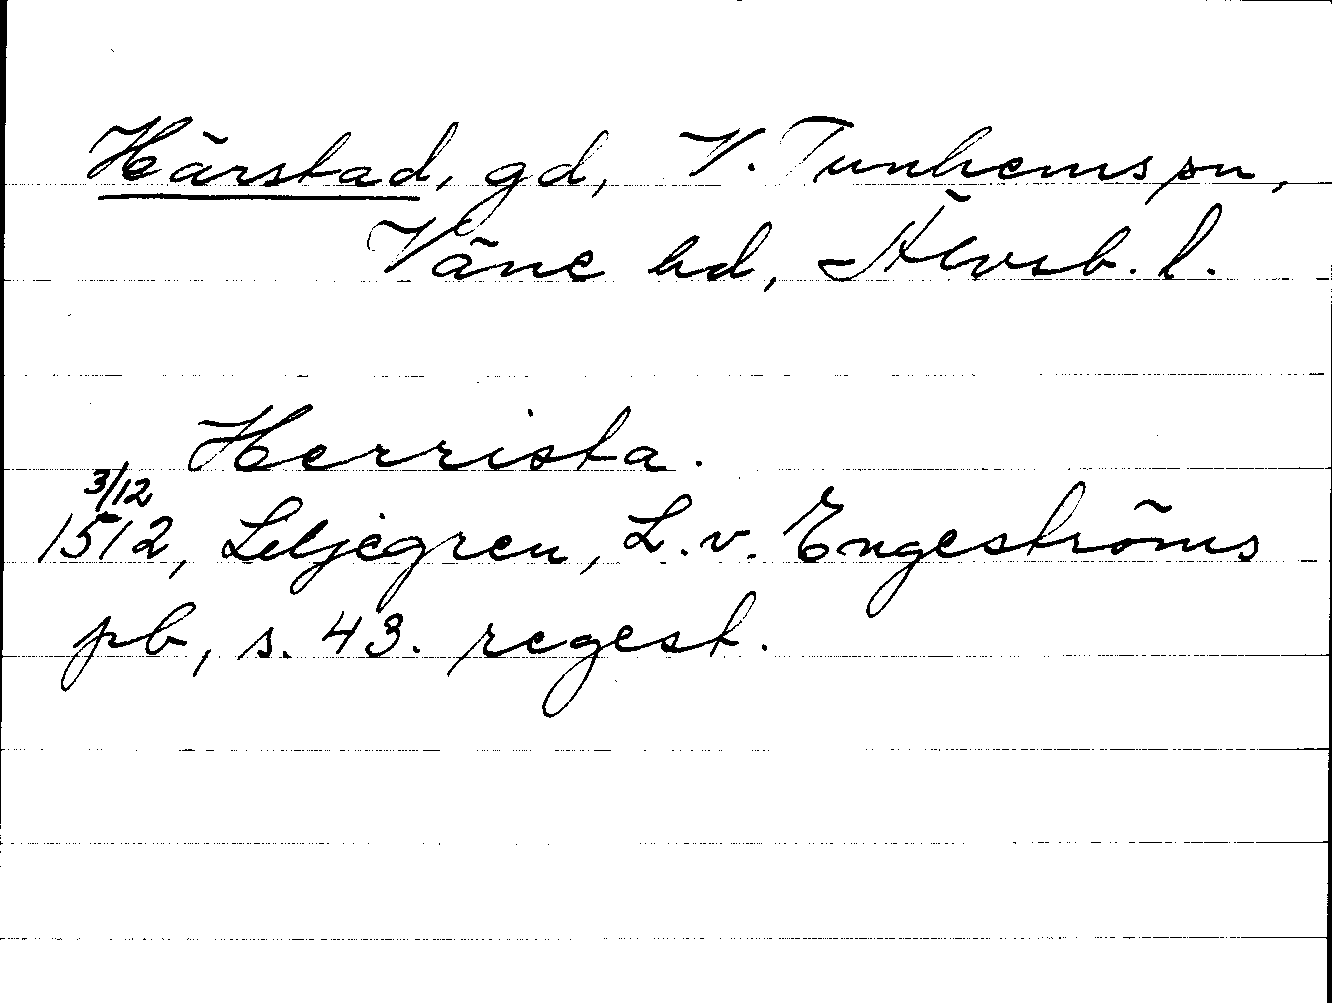 Härstad, gd, V. Tunhems sn,
Väne hd, Älvsb. l.
Herrista.
3/12
1512, Liljegren, L. v. Engeströms
pb, s. 43. regest.